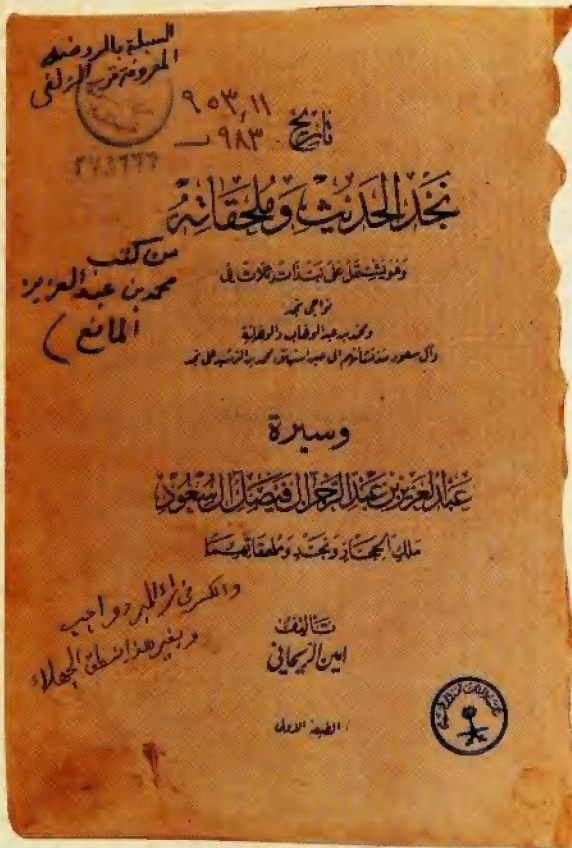 السبلة بالروضه
المعروفة قرب الزلفى
٩٥٣,١١
٩٨٣ ـر
٢٧٣٦٦٦
تاريخ
نجد الحديث وملحقاته
وهو يشتمل على نبذات ثلاث في
نواحي نجد
ومحمد بن عبد الوهاب والوهابية
وآل سعود منذ نشأتهم الى حين استيلاء محمد بن الرشيد على نجد
من كتب
محمد بن عبد العزيز
المانع )
وسيرة
عبد العزيز بن عبد الرحمن آل فيصل آل سعود
ملك الحجاز ونجد وملحقاتهما
والكسر في راء المبرد واجب
وبغير هذا ينطق الجهلاء
تأليف
امين الريحاني
الطبعة الاولى